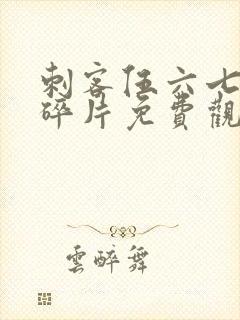 刺客伍六七
碎片免費觀
雲醉舞